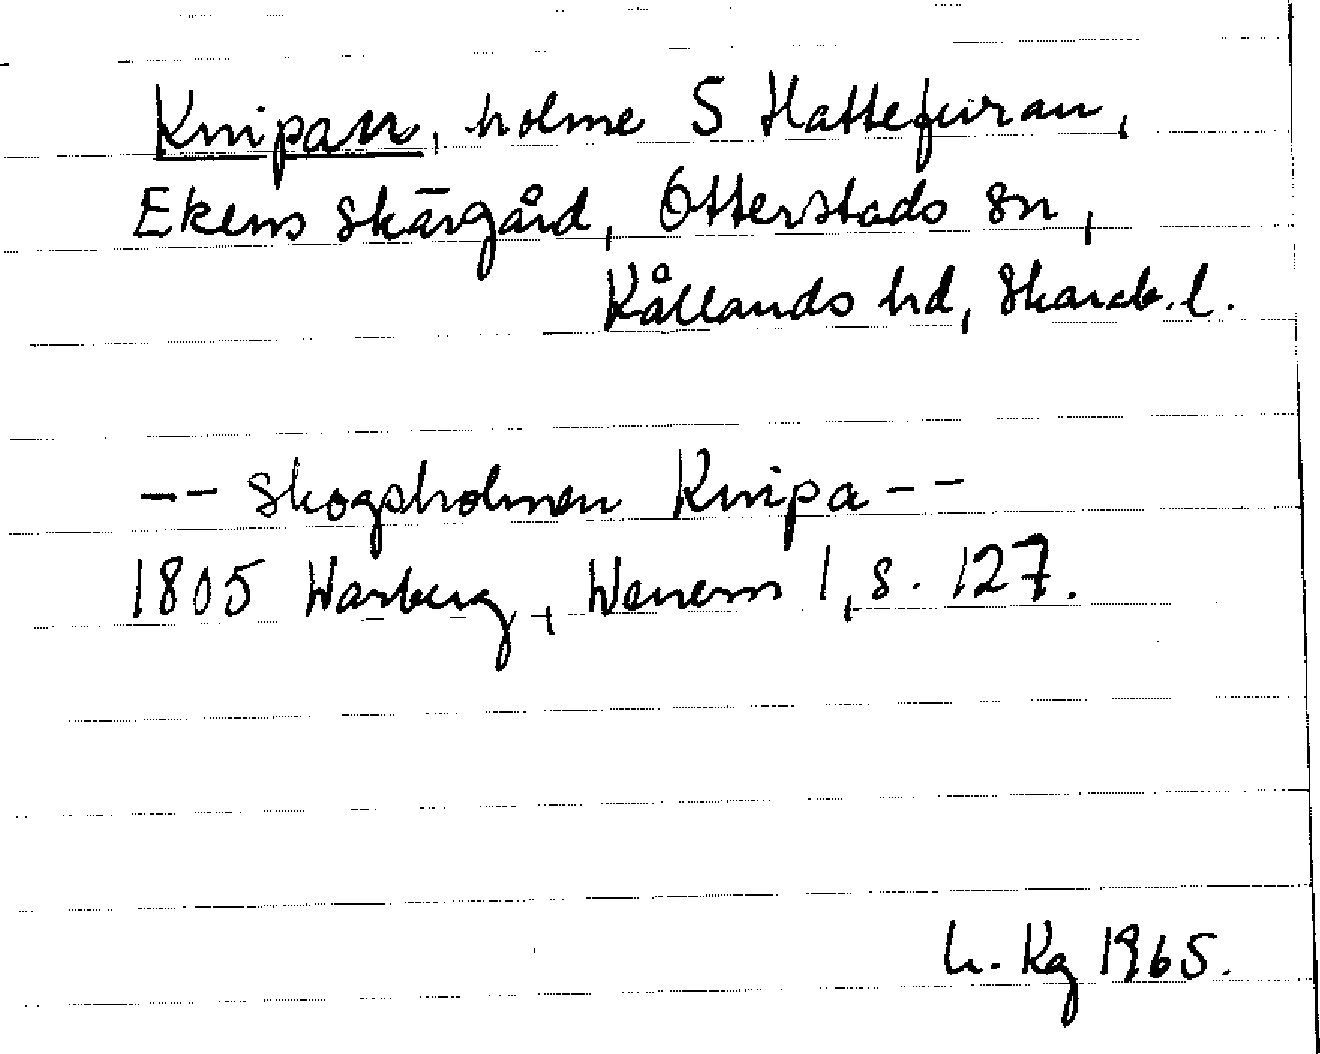 Knipan, holme S Hattefuran,
Ekens skärgård, Otterstads sn,
Kållands hd, Skarab. l.
-- Skogsholmen Knipa --
1805 Warberg, Wenern 1, s. 127.
L. Kg 1965.